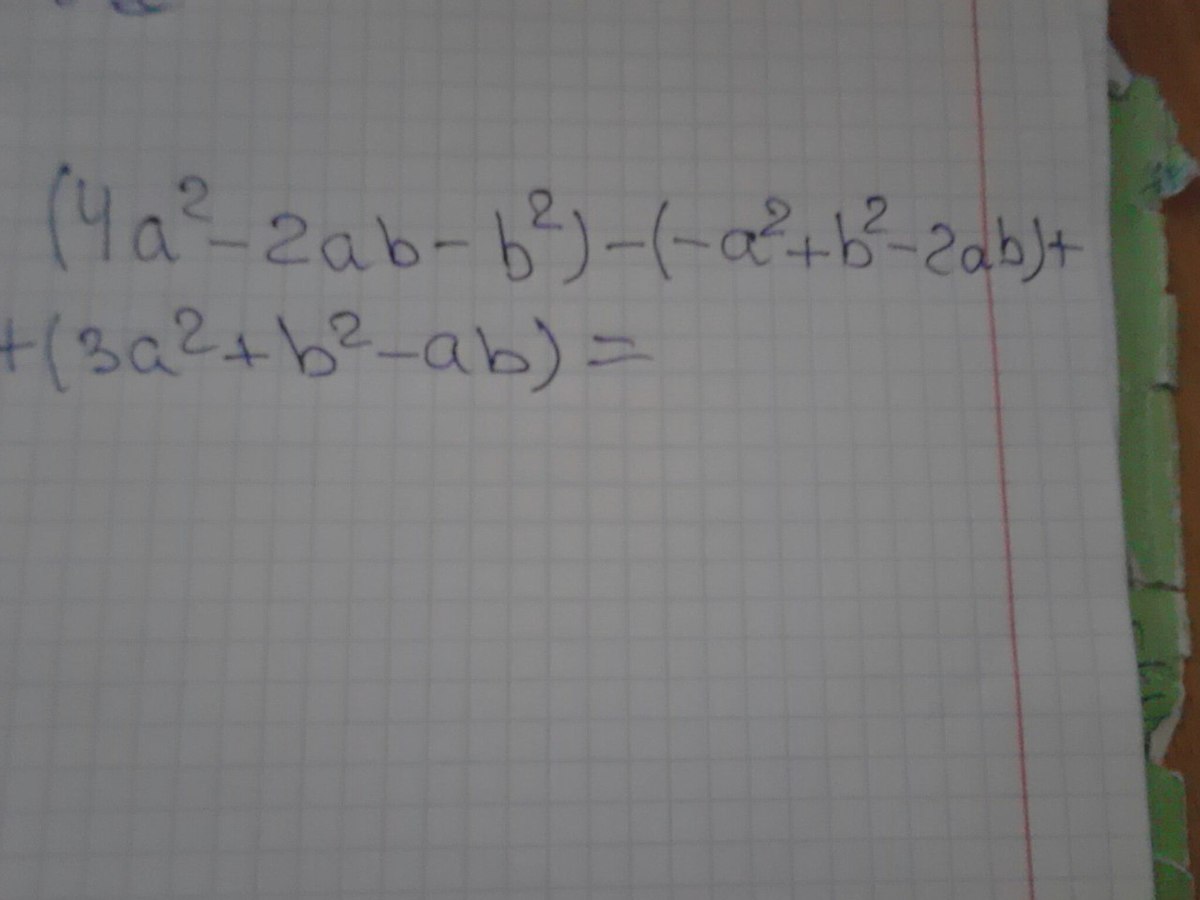 (4a²-2ab-b²)-(-a²+b²-2ab)+
+(3a²+b²-ab)=